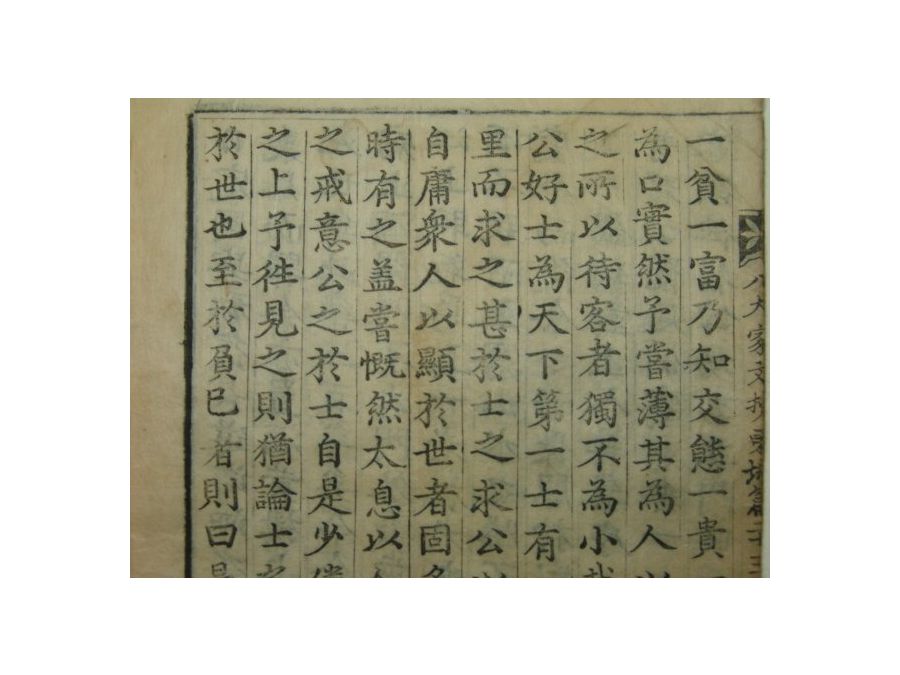 八大家文抄東坡篇二十三
一貧一富乃知交態一貴
為口實然予嘗薄其為人
之所以待客者獨不為小
公好士為天下第一士有
里而求之甚於士之求公
自庸衆人以顯於世者固
時有之盖嘗慨然太息以
之戒意公之於士自是少
之上予徃見之則猶論士
於世也至於負巳者則曰